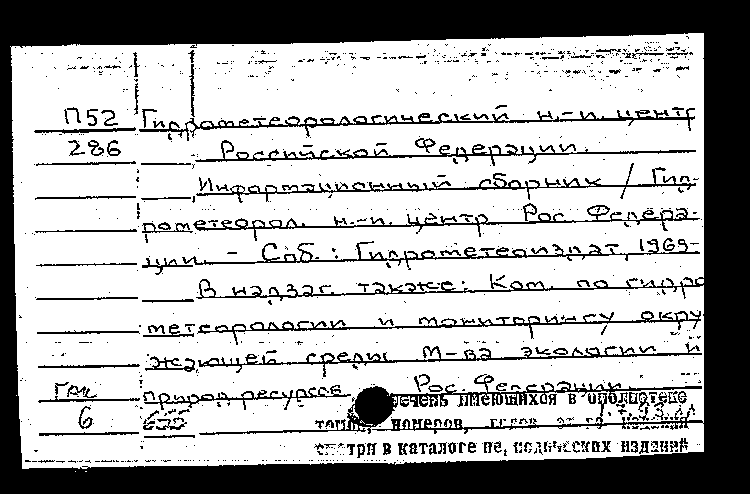 П52 Гидрометеорологический н.-и. центр
286 Российской Федерации.
Информационный сборник / Гид-
рометеорол. н.-и. центр Рос. Федера-
ции. - Спб. : Гидрометеоиздат, 1969-
В надзаг. также: Ком. по гидро
метеорологии и мониторингу окру
жающей среды М-ва экологии и
природ. ресурсов Рос. Федерации.
6
речень имеющихся в библиотеке
томов, номеров, годов
смотри в каталоге пе, иодических изданий